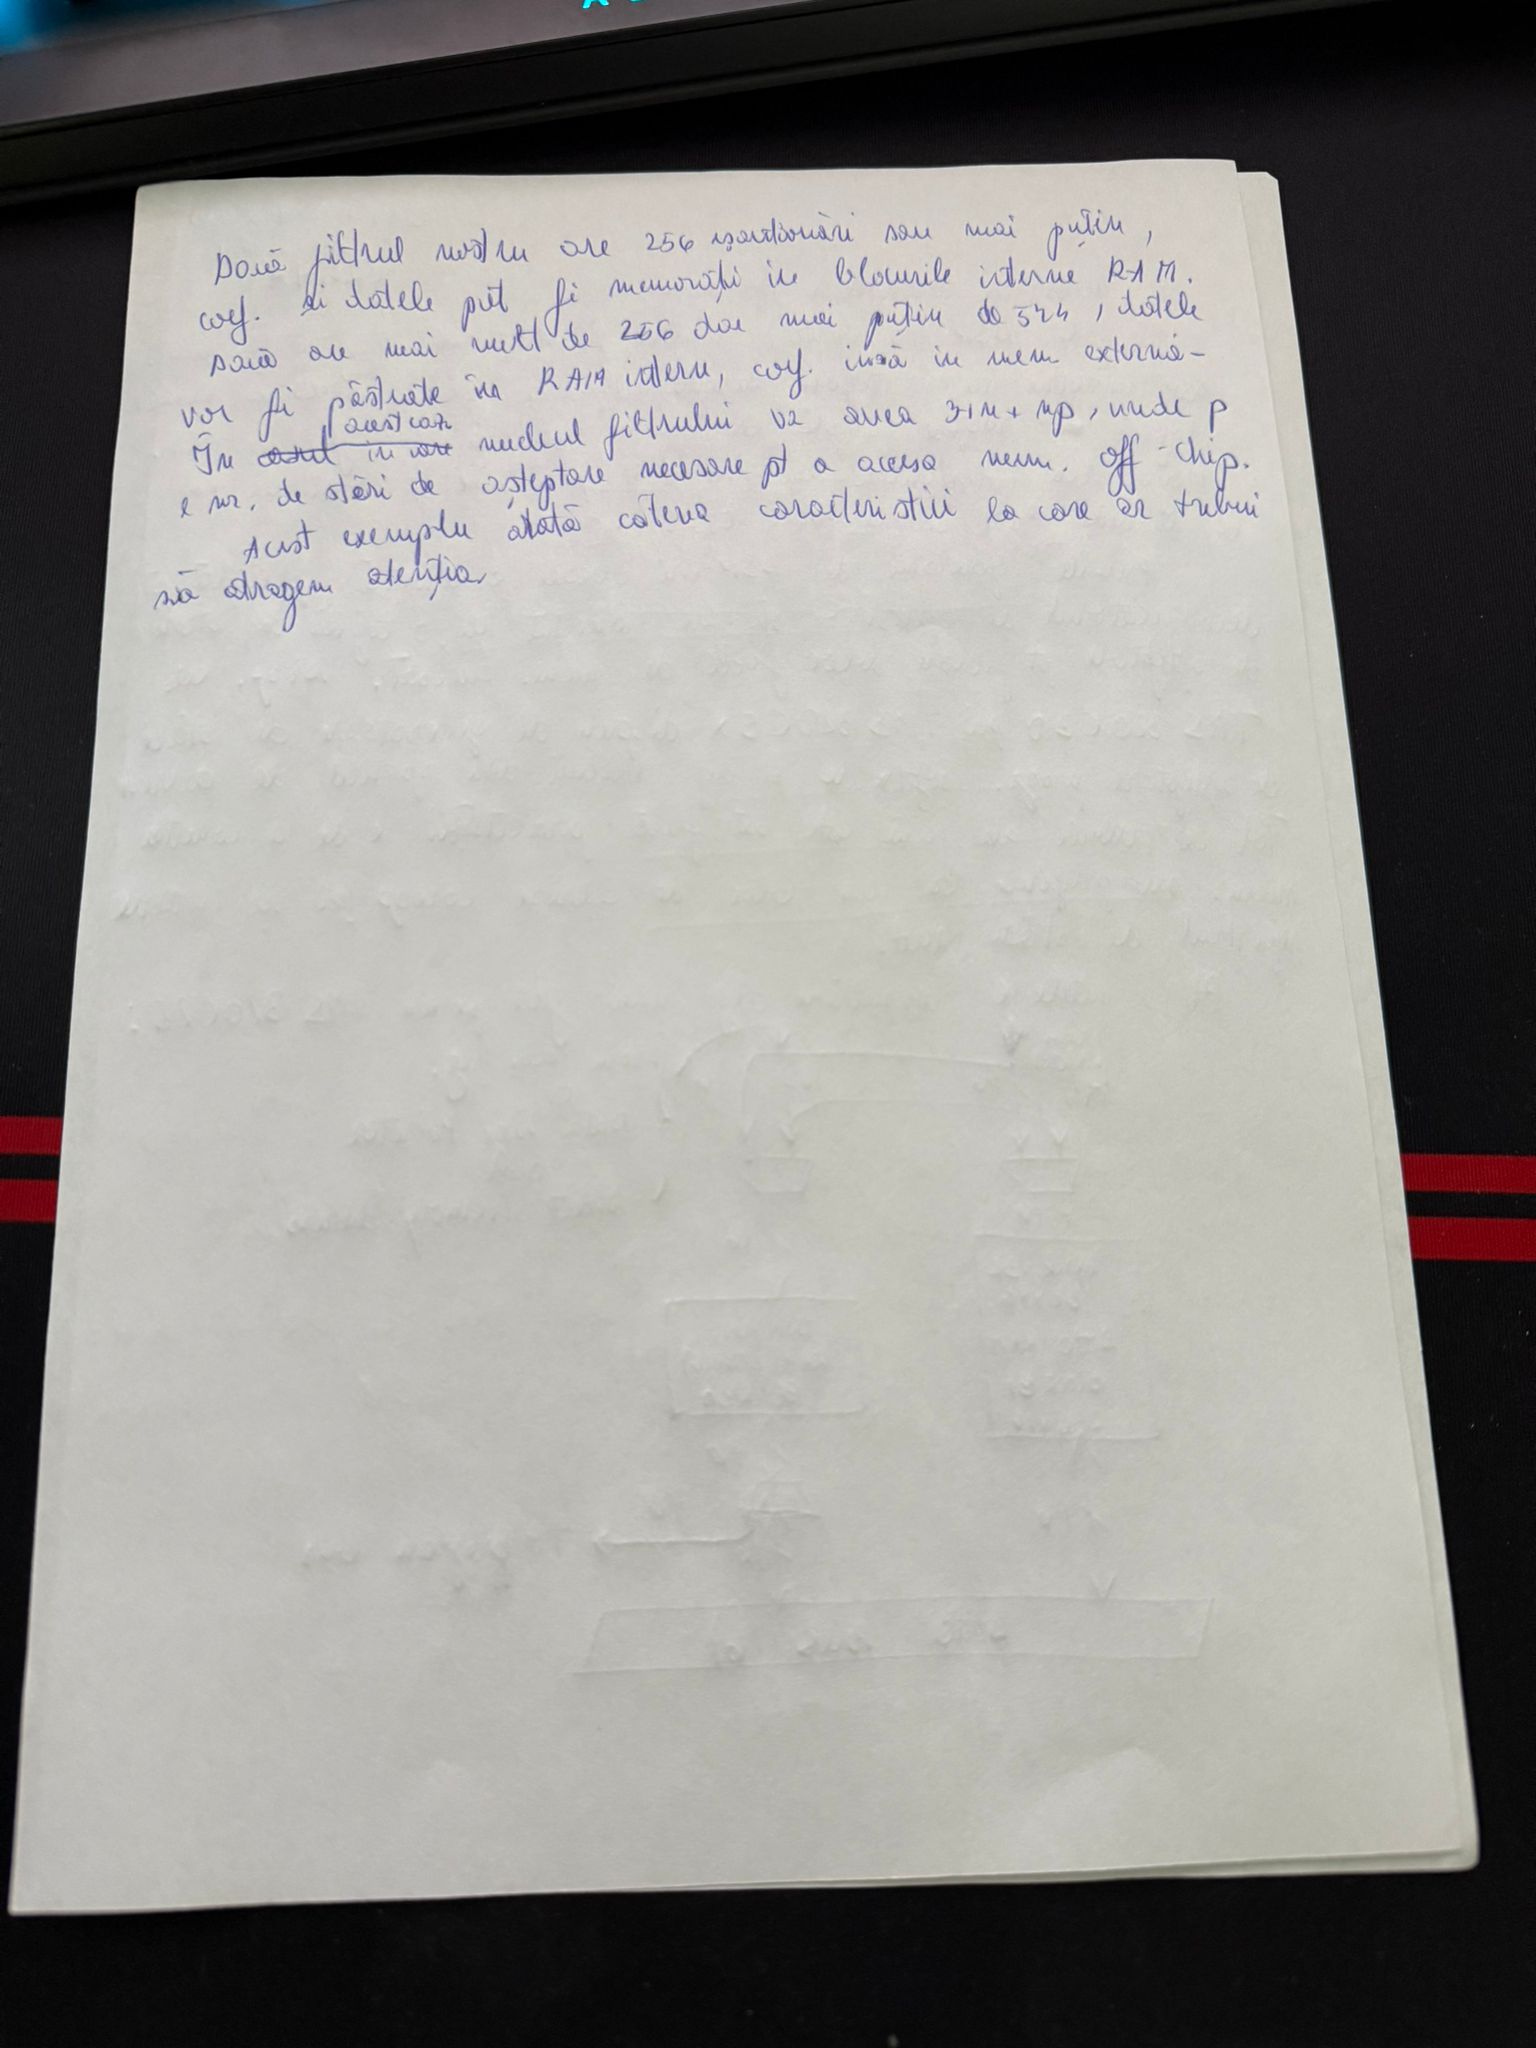 Dacă filtrul nostru are 256 eșantionări sau mai puțin,
coef. și datele pot fi memorați în blocurile interne RAM.
Dacă are mai mult de 256 dar mai puțin de 544, datele
vor fi păstrate în RAM intern, coef. însă în mem externă-
acest caz
În cazul în care nucleul filtrului va avea 3+n+np, unde p
e nr. de stări de așteptare necesare pt a accesa mem. off-chip.
Acest exemplu arată câteva caracteristici la care ar trebui
să atragem atenția.